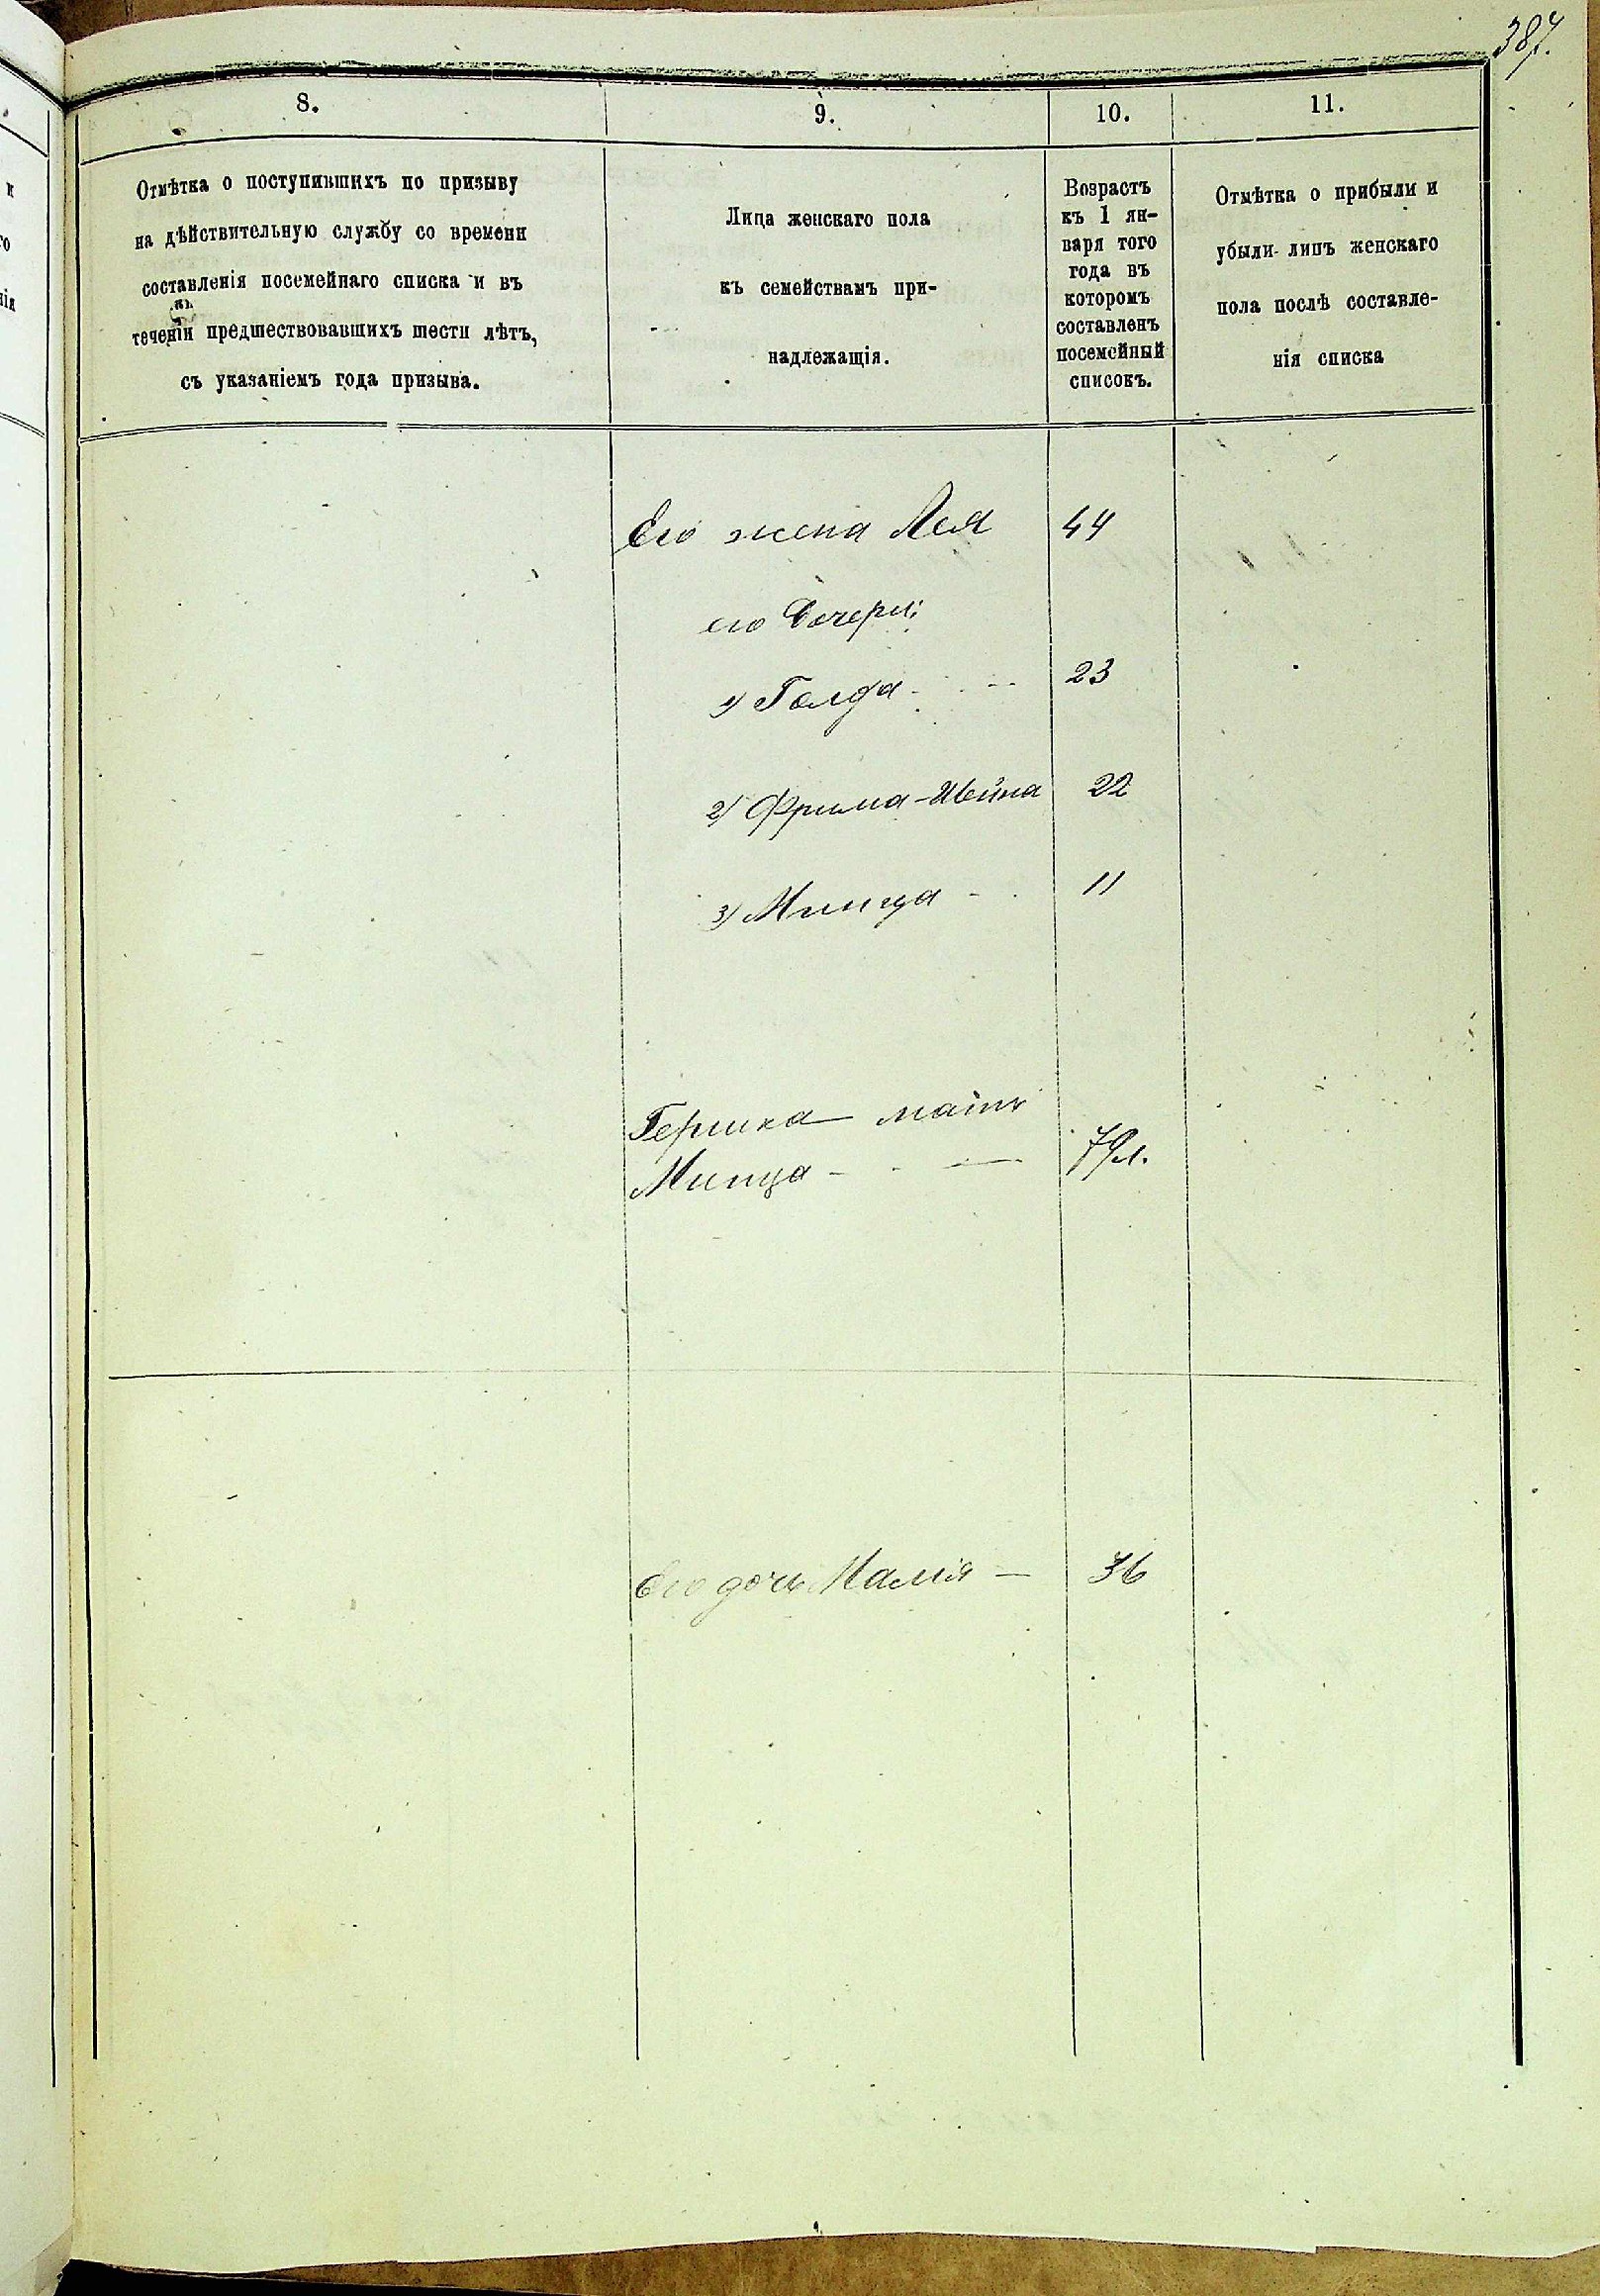 387.
8.
9.
10.
11.
Отмѣтка о поступившихъ по призыву
на дѣйствительную службу со времени
составленія посемейнаго списка и въ
теченіи предшествовавшихъ шести лѣтъ,
съ указаніемъ года призыва.
Лица женскаго пола
къ семействамъ при-
надлежащія.
Возрастъ
къ 1 ян-
варя того
года въ
которомъ
составленъ
посемейный
списокъ.
Отмѣтка о прибыли и
убыли лицъ женскаго
пола послѣ составле-
нія списка
Его жена Лея 44
его Дочери:
1) Голда 23
2) Фрима- 22
3) 11
Гершка мать
Минца 79л.
Его дочь Малія 36